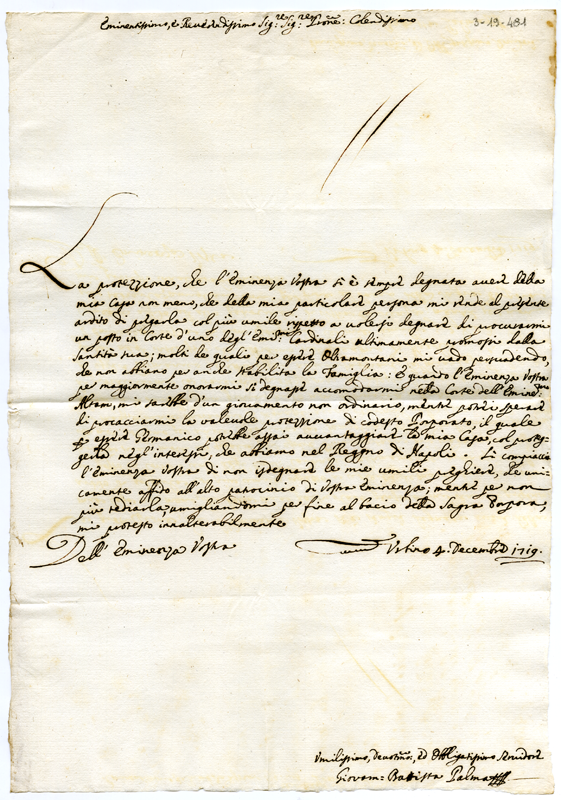 3-19-481
Eminentissimo, e Reverendissimo Sig.re Sig.re Prone: Colendissimo
La protezzione, che l'Eminenza Vostra si è sempre degnata avere della
mia Casa non meno, che della mia particolare persona mi rende al presente
ardito di pregarla col più umile rispetto a volersi degnare di procurarmi
un posto in Corte d'uno degl'Emi: Cardinali ultimamente promossi dalla
Santità sua; molti de quali per essere Oltramontani mi vado persuadendo,
che non abbiano per anche stabilita la Famiglia: E quando l'Eminenza Vostra
per maggiormente onorarmi si degnasse accomodarmi nella Corte dell'Emin:
mi sarebbe d'un giovamento non ordinario, mentre potrei sperare
di procacciarmi la valevole protezzione di codesto Porporato, il quale
essere Germanico potrebbe assai avvantaggiare la mia Casa, col proteg-
gerla negl'interessi, che abbiamo nel Regno di Napoli. Si compiaccia
l'Eminenza Vostra di non isdegnare le mie umili preghiere, che uni-
camente affido all'alto patrocinio di Vostra Eminenza; mentre per non
più tediarla, umigliandomi per fine al bacio della Sagra Porpora,
mi protesto inalterabilmente
Dell'Eminenza Vostra
Urbino 4. Decembre 1719.
Umilissimo, Devotmo, ed Obbligatissimo Servidore
Giovam: Battista Palma